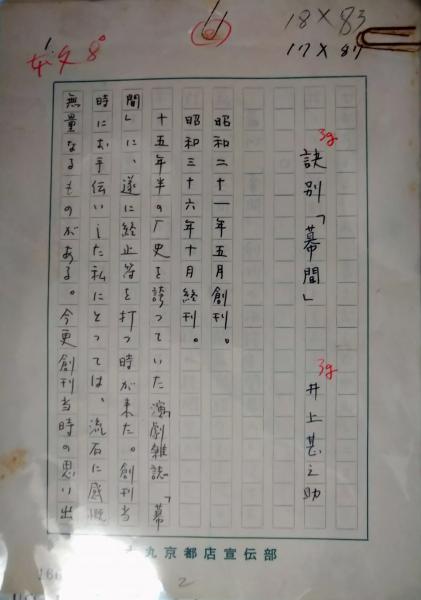 本文8°
18×83
17×8
3g
訣別「幕間」
3g
井上甚之助
昭和二十一年五月創刊。
昭和三十六年十月終刊。
十五年半の厂史を誇っていた演劇雑誌「幕
間」に、遂に終止符を打つ時が来た。創刊当
時にお手伝いした私にとっては、流石に感慨
無量なるものがある。今更創刊当時の思い出
丸京都店宣伝部
166
2